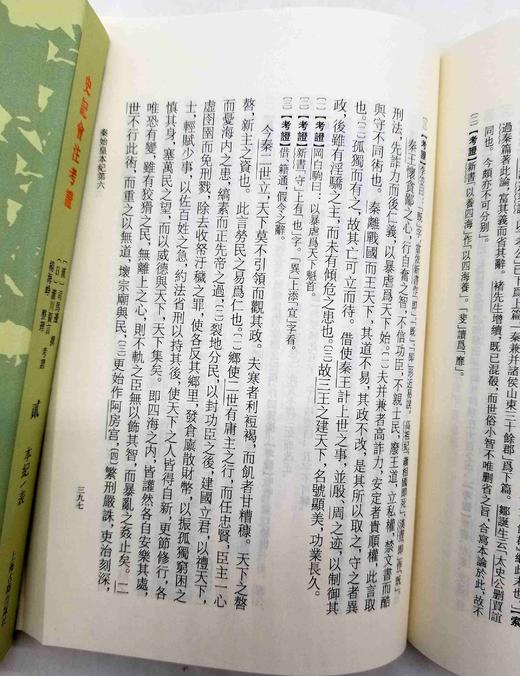 侯山東三十餘郡」爲下篇。鄒誕生云：太史公刪賈誼
過秦篇著此論，富其義而省其辭。褚先生增續，既已混殽，而世俗小智不唯刪省之旨，合寫本論於此，故不
同也。今頗亦不可分別。
〔三〕【考證】新書「以養四海」作「以四海養」。「斐」讀爲「靡」。
秦王懷貪鄙之心，行自奮之智，不信功臣，不親士民，廢王道，立私權，禁文書而酷
刑法，先詐力而後仁義，以暴虐爲天下始。〔一〕夫并兼者高詐力，安定者貴順權，此言取
與守不同術也。〔二〕秦離戰國而王天下，其道不易，其政不改，是其所以取之、守之者異
也。孤獨而有之，故其亡可立而待。借使秦王計上世之事，並殷、周之迹，以制御其
政，後雖有淫驕之主，而未有傾危之患也。〔三〕故三王之建天下，名號顯美，功業長久。
〔一〕【考證】岡白駒曰：以暴虐爲天下魁首。
〔二〕【考證】新書「守」上有「也」字。「異」上添「宜」字看。
〔三〕【考證】借，籍通，假令之辭。
今秦二世立，天下莫不引領而觀其政。夫寒者利裋褐，而飢者甘糟穅。天下之嗸
嗸，新主之資也。〔一〕此言勞民之易爲仁也。〔二〕鄉使二世有庸主之行，而任忠賢，臣主一心
而憂海内之患，縞素而正先帝之過；〔三〕裂地分民，以封功臣之後，建國立君，以禮天下，
虛囹圄而免刑戮，除去收帑汙穢之罪，使各反其鄉里，發倉廩散財幣，以振孤獨窮困之
士，輕賦少事，以佐百姓之急，約法省刑以持其後，使天下之人皆得自新，更節修行，各
慎其身，塞萬民之望，而以威德與天下，天下集矣。即四海之内，皆讙然各自安樂其處，
唯恐有變，雖有狡猾之民，無離上之心，則不軌之臣無以飾其智，而暴亂之姦止矣。二
世不行此術，而重之以無道，壞宗廟與民，〔三〕更始作阿房宮，〔四〕繁刑嚴誅，吏治刻深，
秦始皇本紀第六
三九七
史記會注考證
〔漢〕司馬遷 撰
〔日〕瀧川資言 考證
楊海崢 整理
貳
本紀／表
上海古籍出版社